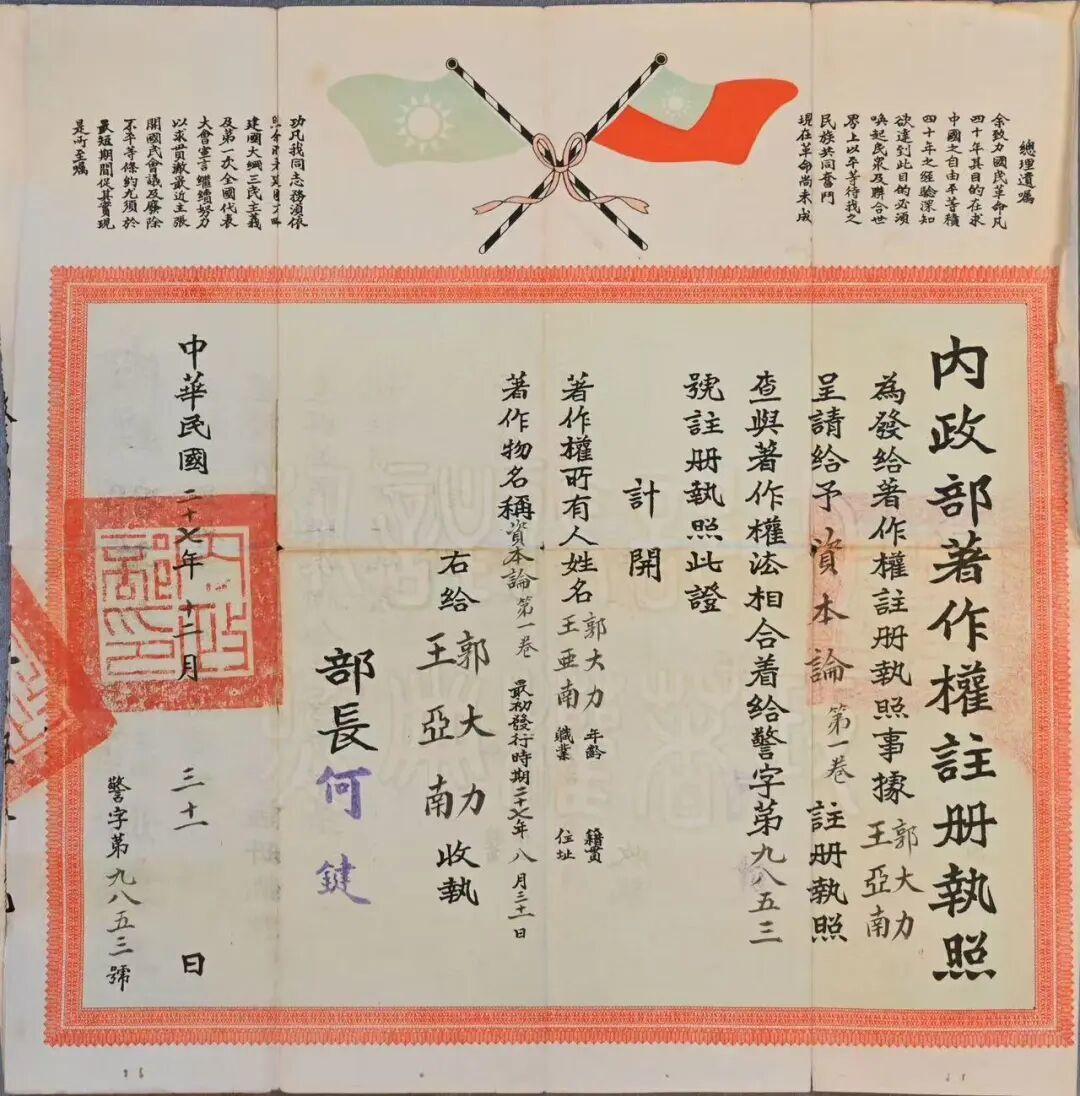 總理遺囑
余致力國民革命凡
四十年其目的在求
中國之自由平等積
四十年之經驗深知
欲達到此目的必須
喚起民衆及聯合世
界上以平等待我之
民族共同奮鬥
現在革命尚未成
功凡我同志務須依
建國大綱三民主義
及第一次全國代表
大會宣言繼續努力
以求貫徹最近主張
開國民會議及廢除
不平等條約尤須於
最短期間促其實現
是所至囑
內政部著作權註册執照
為發給著作權註册執照事據郭大力王亞南
呈請給予資本論第一卷註册執照
查與著作權法相合着給警字第九八五三
號註册執照此證
計開
著作權所有人姓名郭大力王亞南 年齡 職業 籍貫 住址
著作物名稱資本論第一卷 最初發行時期二十七年八月三十一日
右給郭大力王亞南收執
部長何鍵
中華民國二十七年十二月三十一日
警字第九八五三號
內政部印